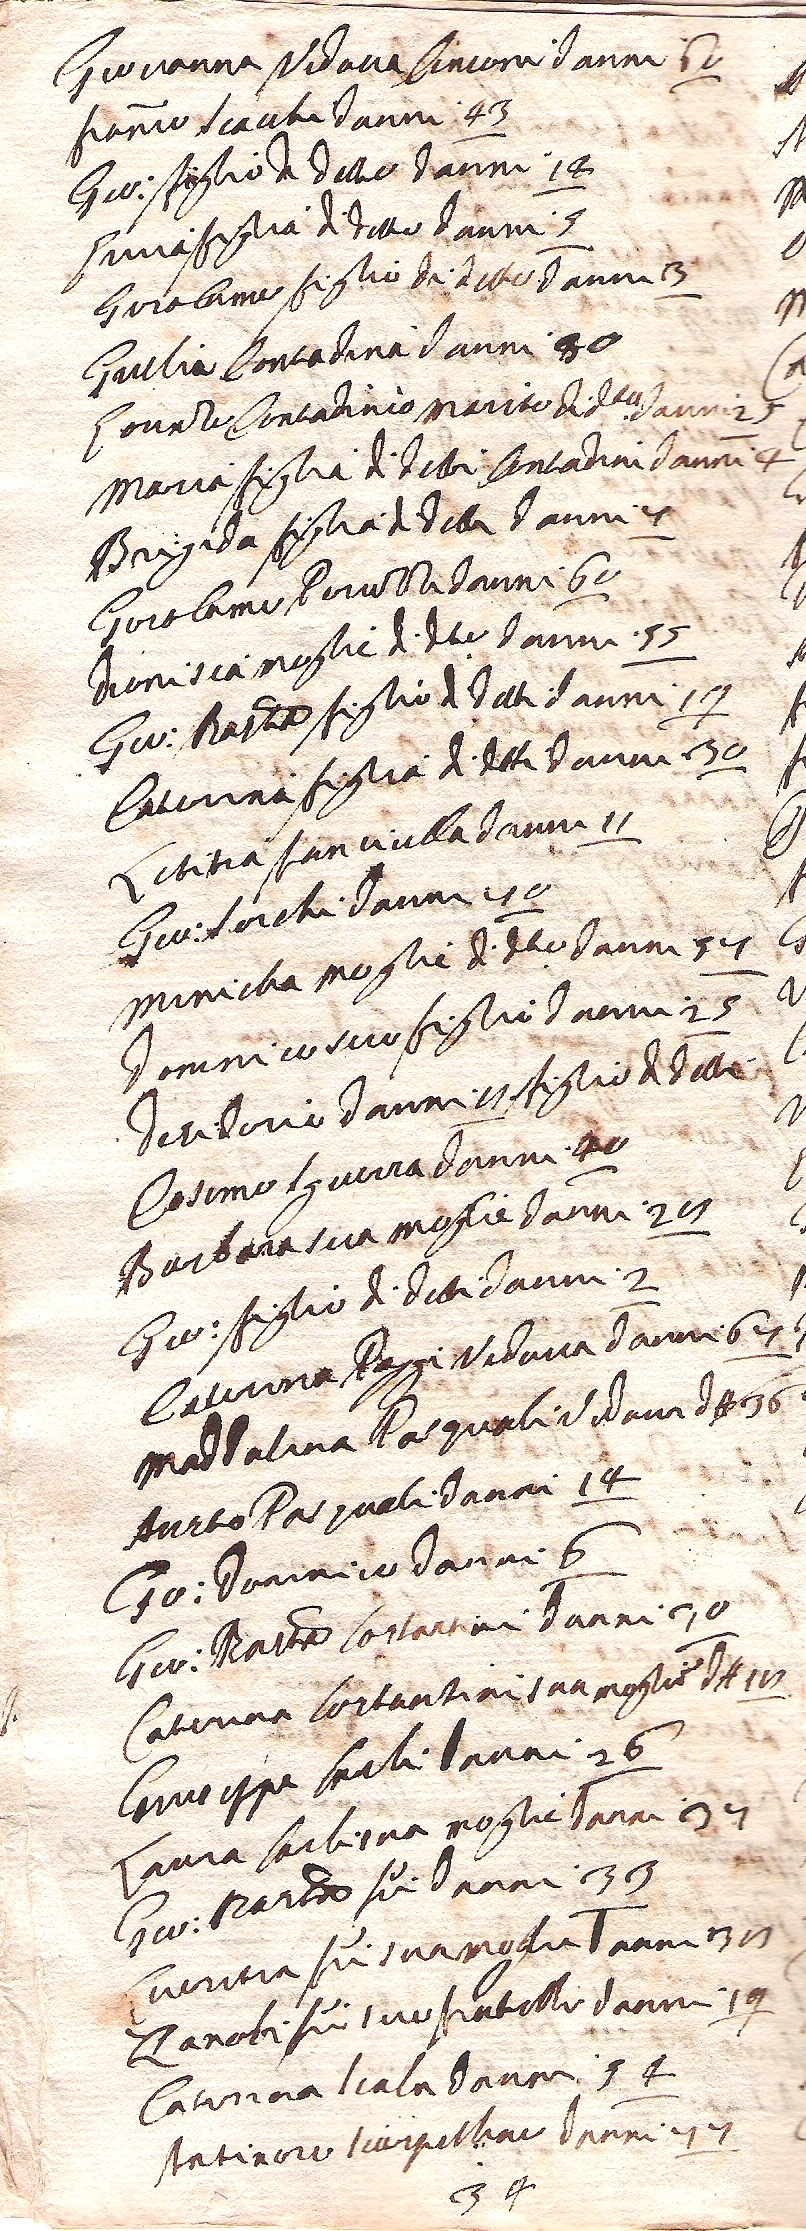 Giovanna Vedova Simconi d'anni 60
Franc.o Scacchi d'anni 43
Gio: figlio di detto d'anni 14
Lucia figlia di detto d'anni 5
Girolamo figlio di detto d'anni 3
Giulia Contadina d'anni 30
Contadinio marito di d.ta d'anni 25
Maria figlia di detti Contadini d'anni 4
Brigida figlia di detti d'anni
Girolamo Peruzzi d'anni 60
Dionisia moglie di d.to d'anni 55
Gio: Batta figlio di detti d'anni 19
Caterina figlia di detti d'anni 30
Letitia fanciulla d'anni 11
Gio: Sorchi d'anni
Minicha moglie di d.to d'anni
Dominico suo figlio d'anni 25
Desiderio d'anni figlio di detti
Cosimo Sguerra d'anni 40
Barbara sua moglie d'anni
Gio: figlio di detti d'anni 2
Caterina Pazzi Vedova d'anni
Maddalena Pasquali Vedova d'A 36
Pasquali d'anni 14
Gio: Dominico d'anni 6
Gio: Batta Costantini d'anni
Caterina Costantini sua moglie d'A
Giuseppe d'anni 26
Laura sua moglie d'anni
Gio: Batta d'anni 33
Lucritia sua moglie d'anni
Zanobi suo fratello d'anni 19
Caterina Scala d'anni 54
Antinoro Scarpellino d'anni
34